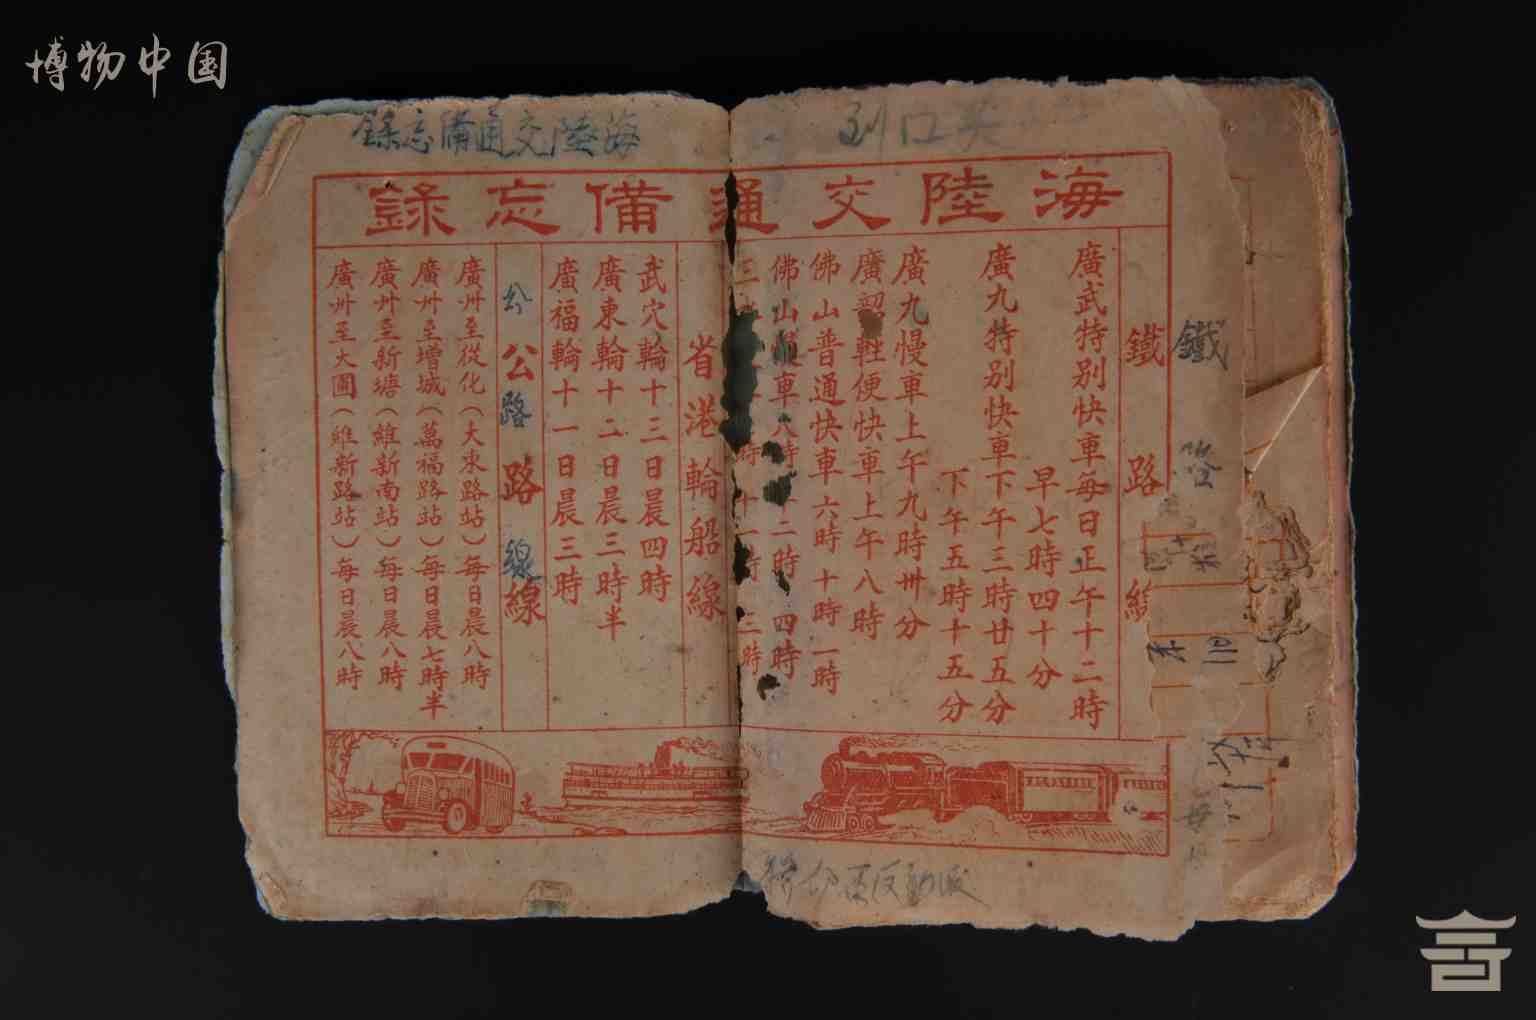 博物中国
海陸交通備忘錄
海陸交通備忘錄
鐵路
鐵路線
廣武特別快車每日正午十二時
早七時四十分
廣九特別快車下午三時廿五分
下午五時十五分
廣九慢車上午九時卅分
廣韶輕便快車上午八時
佛山普通快車六時十時一時
佛山慢車八時十二時四時
三時十一時三時
省港輪船線
武穴輪十三日晨四時
廣東輪十二日晨三時半
廣福輪十一日晨三時
公路線
公路線
廣州至從化(大東路站)每日晨八時
廣州至增城(萬福路站)每日晨七時半
廣州至新塘(維新南站)每日晨八時
廣州至大圃(維新路站)每日晨八時
反動派
每日